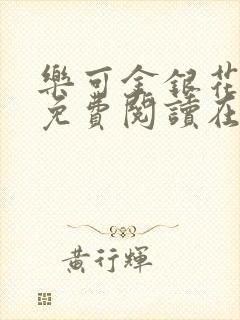 樂可金銀花
免費閱讀在
黃行輝